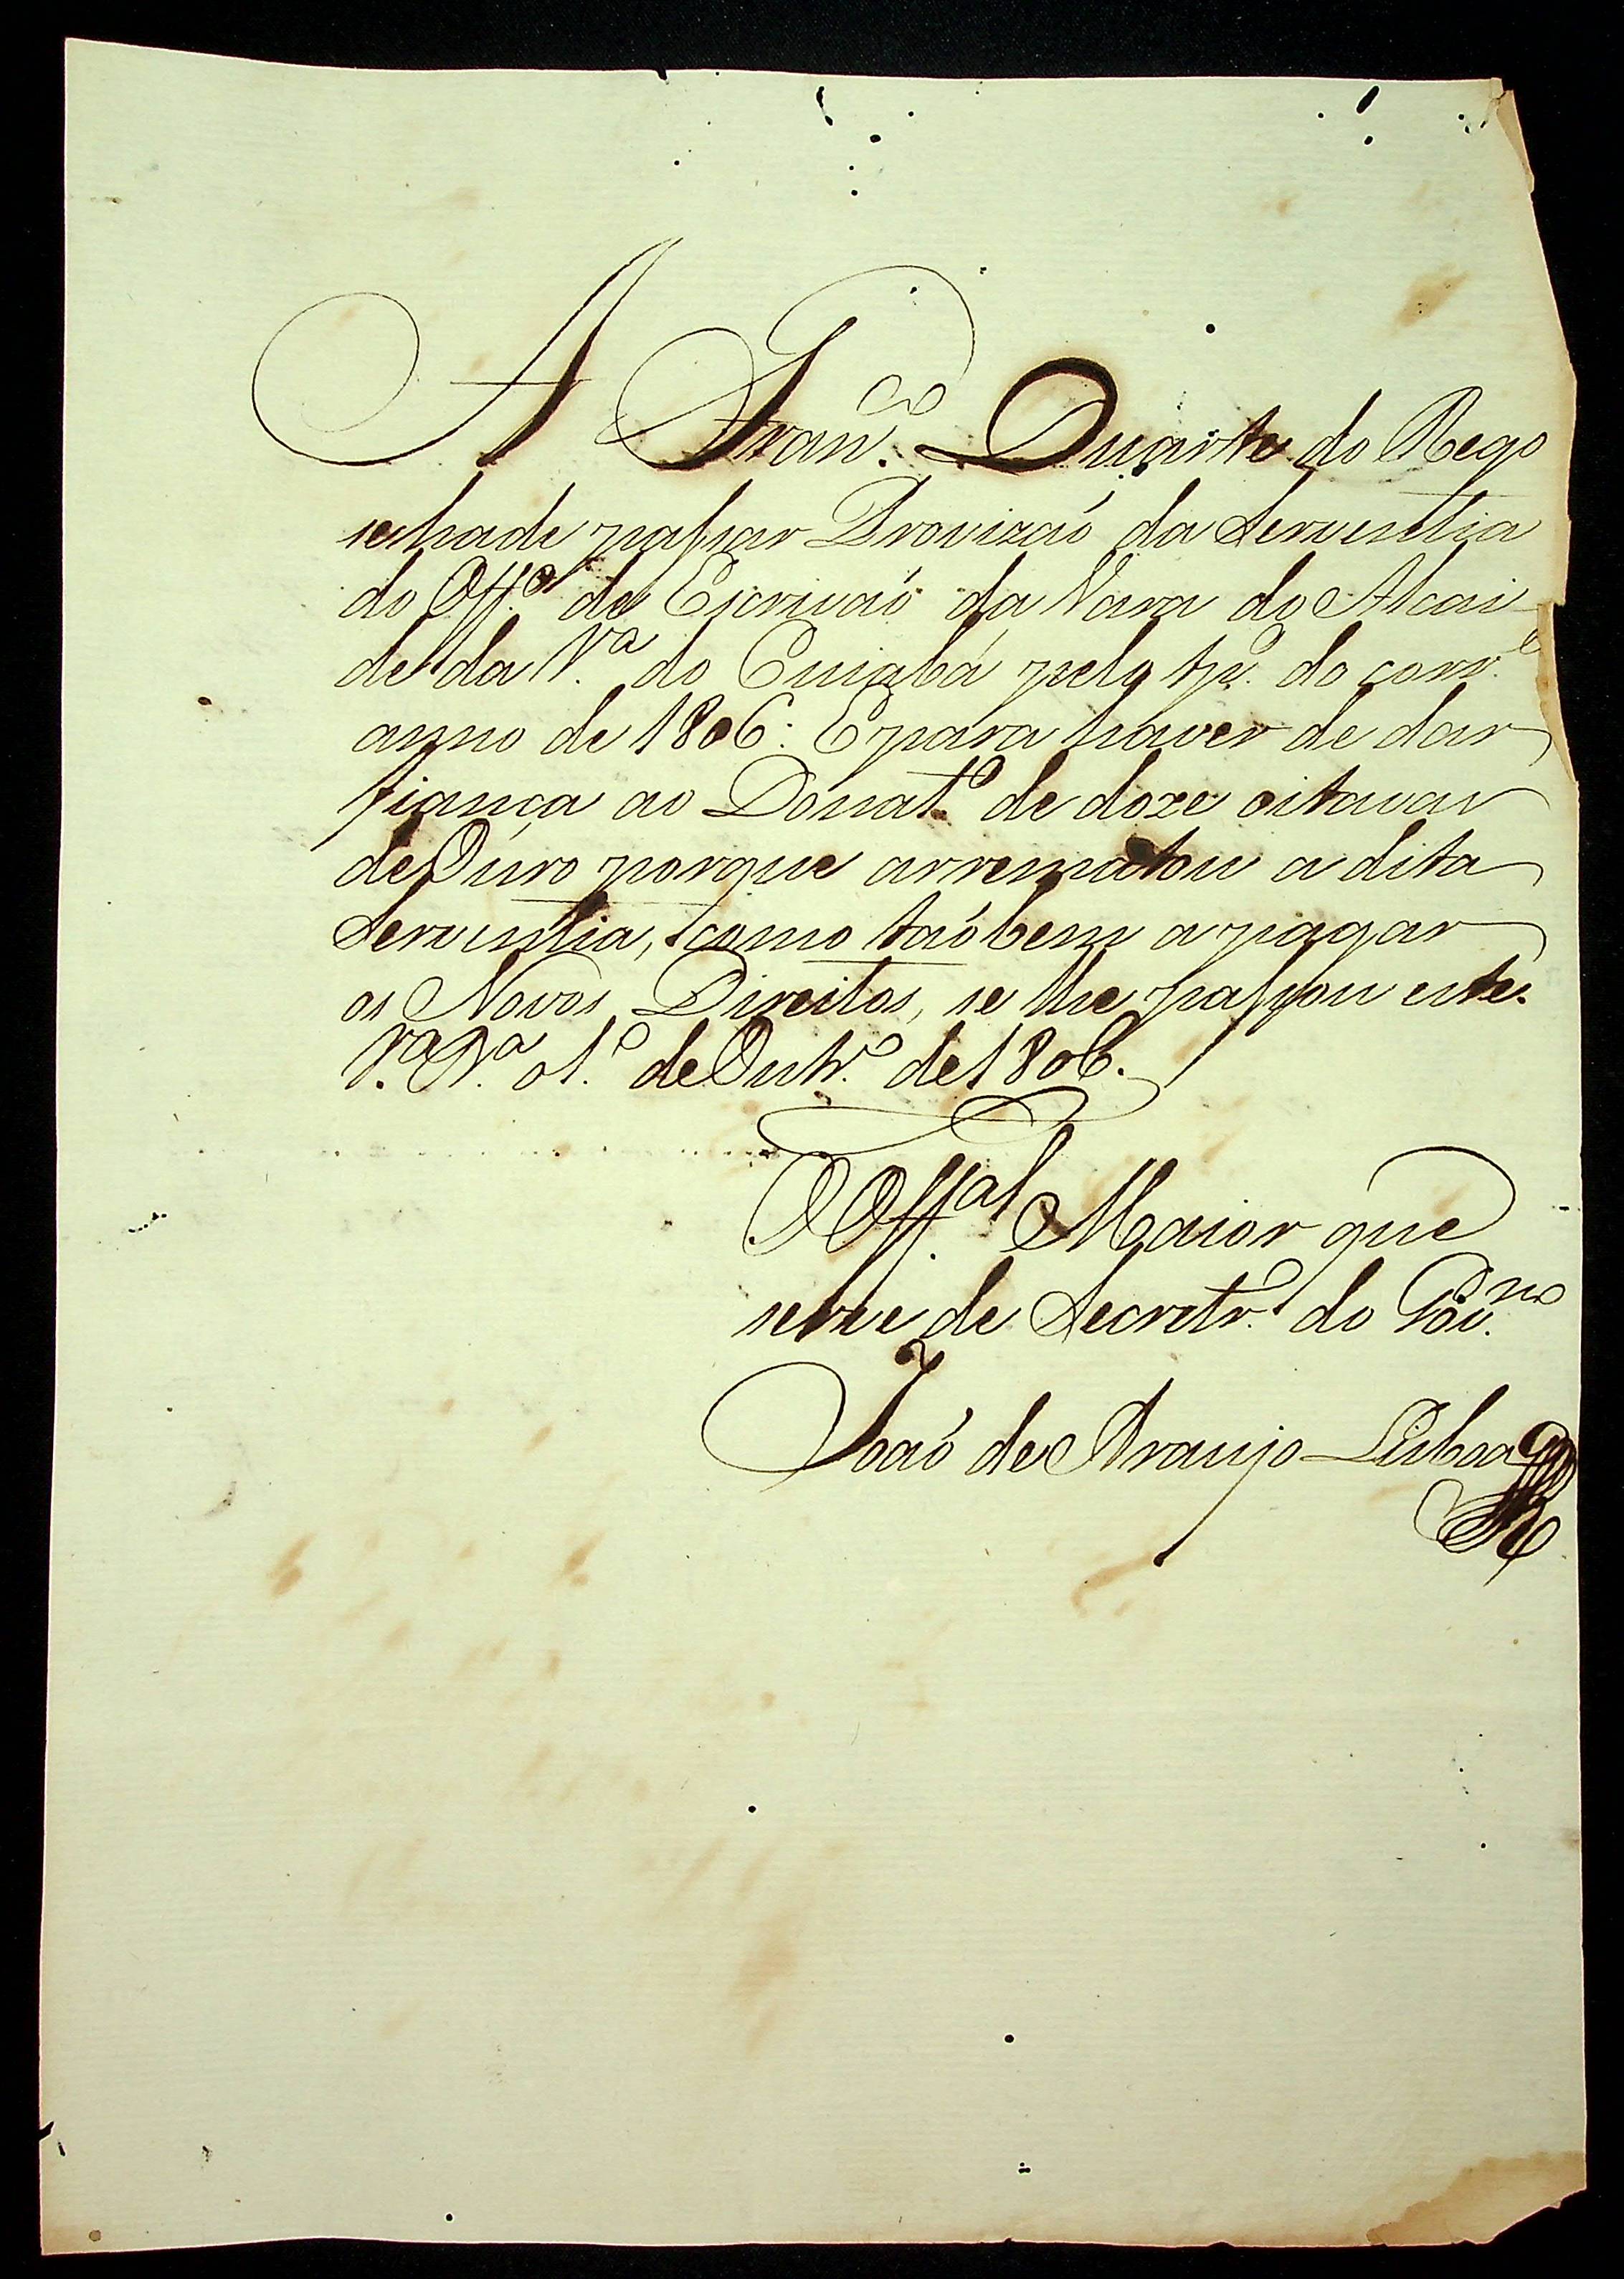 A Fran.co Duarte do Rego
se hade passar Provizaó da Serventia
do Off.o de Escrivaó da Vara do Alcai-
de da V.a do Cuiabá pelo tp.o do corr.e
anno de 1806: E para haver de dar
fiança ao Donat.o de doze oitavas
de Ouro porque arrematou a dita
Serventia, como taóbem a pagar
os Novos Direitos, se lhe passou este.
V.a B.a o 1.o de Outr.o de 1806.
O Off.al Maior que
serve de Secretr.o do Gov.no
Joaó de Araujo Lisboa